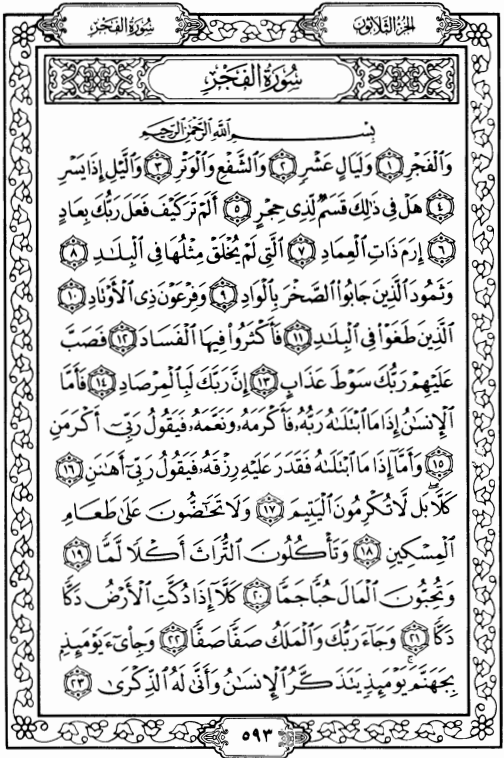 سُورَةُ الفَجْرِ
الجُزْءُ الثَّلَاثُونَ
سُورَةُ الفَجْرِ
بِسْمِ اللَّهِ الرَّحْمَٰنِ الرَّحِيمِ
وَالْفَجْرِ ١ وَلَيَالٍ عَشْرٍ ٢ وَالشَّفْعِ وَالْوَتْرِ ٣ وَالَّيْلِ إِذَا يَسْرِ
٤ هَلْ فِي ذَٰلِكَ قَسَمٌ لِّذِي حِجْرٍ ٥ أَلَمْ تَرَ كَيْفَ فَعَلَ رَبُّكَ بِعَادٍ
٦ إِرَمَ ذَاتِ الْعِمَادِ ٧ الَّتِي لَمْ يُخْلَقْ مِثْلُهَا فِي الْبِلَٰدِ ٨
وَثَمُودَ الَّذِينَ جَابُوا الصَّخْرَ بِالْوَادِ ٩ وَفِرْعَوْنَ ذِي الْأَوْتَادِ ١٠
الَّذِينَ طَغَوْا فِي الْبِلَٰدِ ١١ فَأَكْثَرُوا فِيهَا الْفَسَادَ ١٢ فَصَبَّ
عَلَيْهِمْ رَبُّكَ سَوْطَ عَذَابٍ ١٣ إِنَّ رَبَّكَ لَبِالْمِرْصَادِ ١٤ فَأَمَّا
الْإِنسَٰنُ إِذَا مَا ابْتَلَىٰهُ رَبُّهُۥ فَأَكْرَمَهُۥ وَنَعَّمَهُۥ فَيَقُولُ رَبِّي أَكْرَمَنِ
١٥ وَأَمَّا إِذَا مَا ابْتَلَىٰهُ فَقَدَرَ عَلَيْهِ رِزْقَهُۥ فَيَقُولُ رَبِّي أَهَٰنَنِ ١٦
كَلَّا ۖ بَل لَّا تُكْرِمُونَ الْيَتِيمَ ١٧ وَلَا تَحَٰٓضُّونَ عَلَىٰ طَعَامِ
الْمِسْكِينِ ١٨ وَتَأْكُلُونَ التُّرَاثَ أَكْلًا لَّمًّا ١٩
وَتُحِبُّونَ الْمَالَ حُبًّا جَمًّا ٢٠ كَلَّا إِذَا دُكَّتِ الْأَرْضُ دَكًّا
دَكًّا ٢١ وَجَاءَ رَبُّكَ وَالْمَلَكُ صَفًّا صَفًّا ٢٢ وَجِا۟يٓءَ يَوْمَئِذٍ
بِجَهَنَّمَ ۚ يَوْمَئِذٍ يَتَذَكَّرُ الْإِنسَٰنُ وَأَنَّىٰ لَهُ الذِّكْرَىٰ ٢٣
٥٩٣